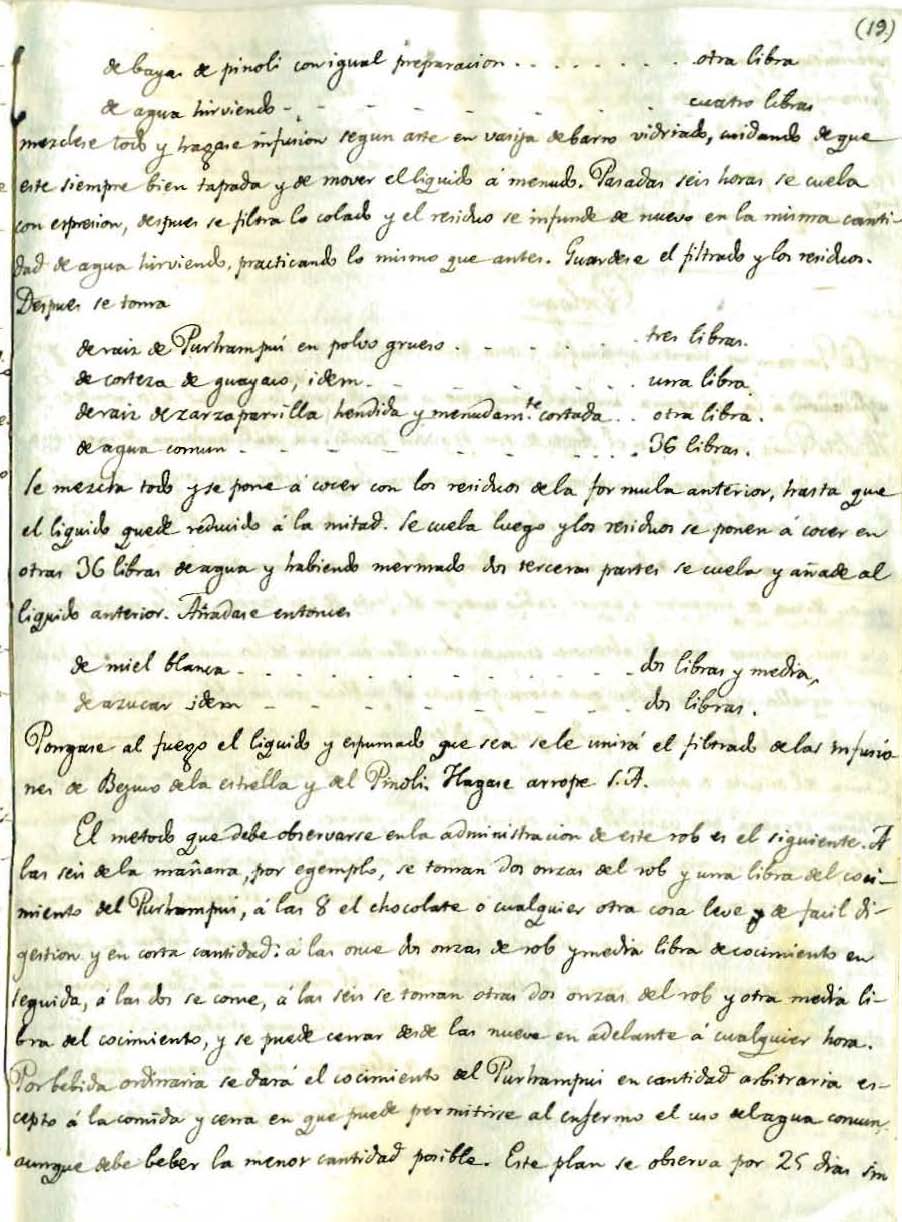 (19.)
de baya de pinoli con igual preparacion . . . . . . . . otra libra
de agua hirviendo - - - - - - - . . cuatro libras
mezclese todo y hagase infusion segun arte en vasija de barro vidriado, cuidando de que
este siempre bien tapada y de mover el liquido á menudo. Pasadas seis horas se cuela
con espresion, despues se filtra lo colado y el residuo se infunde de nuevo en la misma canti-
dad de agua hirviendo, practicando lo mismo que antes. Guardese el filtrado y los residuos.
Despues se toma
de raiz de Purhampui en polvo grueso . - - - - - . . tres libras.
de corteza de guayaco, idem. - - - - - . . . una libra
de raiz de zarzaparrilla hendida y menudam.te cortada . . otra libra.
de agua comun - - - - - - - . . . . 36 libras.
Se mezcla todo y se pone á cocer con los residuos de la formula anterior, hasta que
el liquido quede reducido á la mitad. Se cuela luego y los residuos se ponen á cocer en
otras 36 libras de agua y habiendo mermado dos terceras partes se cuela y añade al
liquido anterior. Añadase entonces
de miel blanca - . . . . . . . - - - dos libras y media,
de azucar idem - - - - - - - . dos libras.
Pongase al fuego el liquido y espumado que sea se le unirá el filtrado de las infusio
nes de Bejuco de la estrella y del Pinoli. Hagase arrope S.A.
El metodo que debe observarse en la administracion de este rob es el siguiente. A
las seis de la mañana, por egemplo, se toman dos onzas del rob y una libra del coci-
miento del Purhampui, á las 8 el chocolate o cualquier otra cosa leve y de facil di-
gestion y en corta cantidad: á las once dos onzas de rob y media libra de cocimiento en
seguida, á las dos se come, á las seis se toman otras dos onzas del rob y otra media li-
bra del cocimiento, y se puede cenar desde las nueve en adelante á cualquier hora.
Por bebida ordinaria se dará el cocimiento del Purhampui en cantidad arbitraria es-
cepto á la comida y cena en que puede permitirse al enfermo el uso del agua comun,
aunque debe beber la menor cantidad posible. Este plan se observa por 25 dias sin